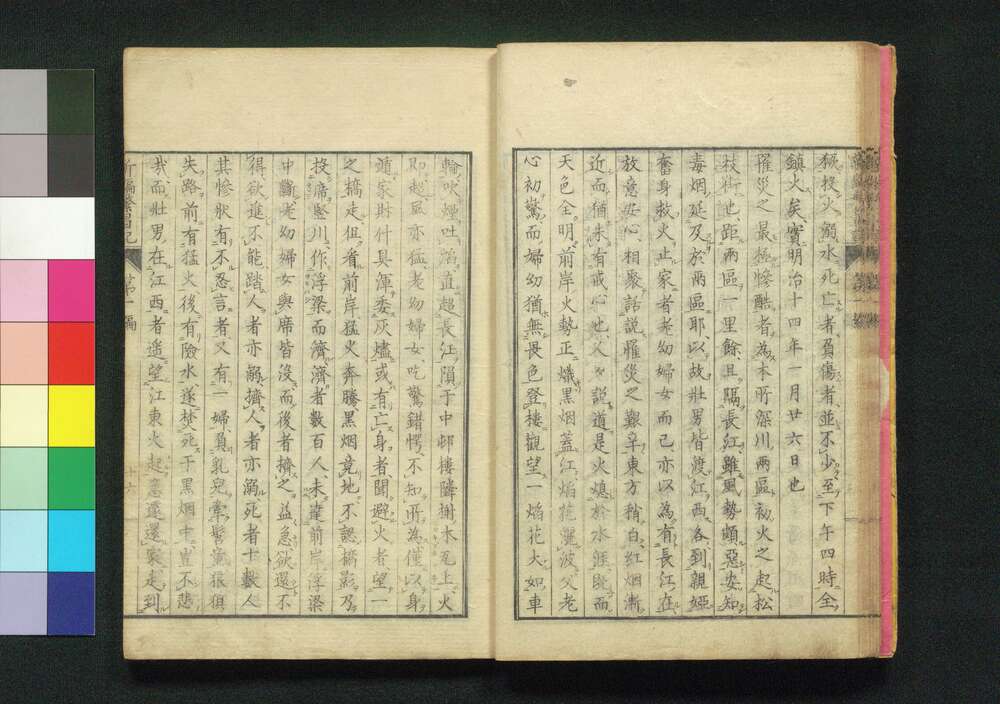 猴投火溺水死亡者負傷者並不少至下午四時全
鎮火矣實明治十四年一月廿六日也
罹災之最極慘酷者為本所深川兩區初火之起松
枝街也距兩區一里餘且隔長江雖風勢頗惡安知
毒烟延及於兩區耶以故壯男皆渡江西各到親婭
奮身救火止家者老幼婦女而已亦以為有長江在
放意安心相聚話說罹災之艱辛東方稍白紅烟漸
近而猶未有戒心也父々說道是火熄於水涯既而
天色全明前岸火勢正熾黑烟蓋江焰花灑波父老
心初驚而婦幼猶無畏色登樓觀望一焰花大如車
輪吹煙吐渦直超長江隕于中邨樓隣樹木尾上火
即起風亦猛老幼婦女吃驚錯愕不知所為僅以身
遁家財什具渾委灰燼或有亡身者聞避火者望一
之橋走但看前岸猛火奔騰黑烟竟地不認橋影乃
投席竪川作浮梁而濟濟者數百人未達前岸浮梁
中斷老幼婦女與席皆沒而後者擠之益急欲還不
得欲進不能踏人者亦溺擠人者亦溺死者十數人
其慘狀有不忍言者又有一婦負乳兒牽髫童狼狽
失路前有猛火後有險水遂焚死于黑烟中豈不悲
哉而壯男在江西者遥望江東火起急遽還家走到
新編繁昌記 第一編 十六